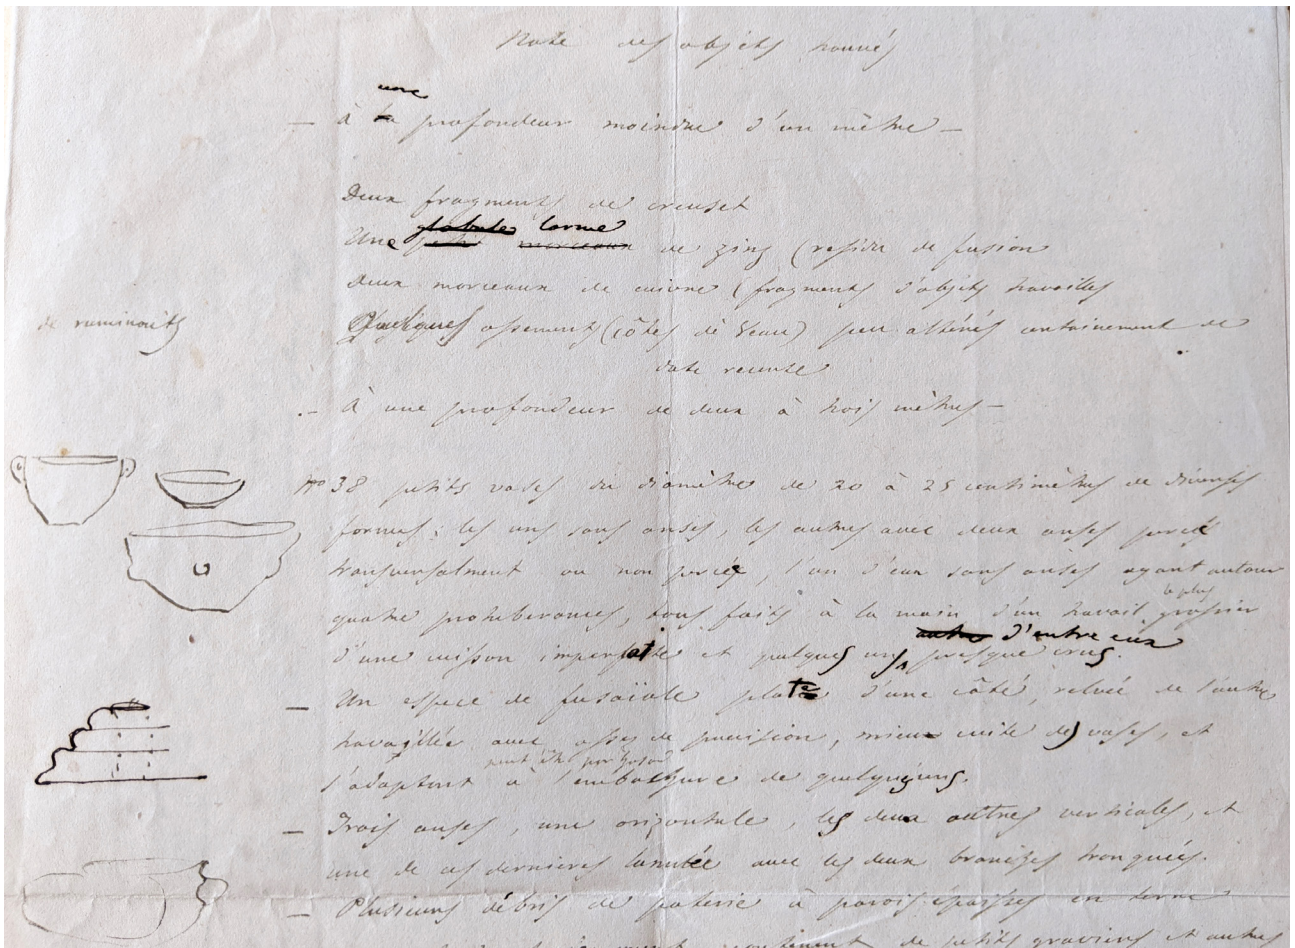 Note des objets trouvés
une
— à la profondeur moindre d'un mètre —
Deux fragments de creuset
globule larme
Une petit morceaux de zing (residu de fusion
deux morceaux de cuivre (fragments d'objets travaillés
de ruminants
Quelques ossement (côtes de veau) peu altérés certainement de
date recente
— À une profondeur de deux à trois mètres —
No 38 petits vases du diamètre de 20 à 25 centimètres de diverses
formes; les uns sans anses, les autres avec deux anses percés
transversalment ou non percée, l'un d'eux sans anses ayant autour
quatre protuberances, tous faits à la main d'un travail le plus grossier
autre d'entre eux
d'une cuisson imparfaite et quelques uns presque crus.
— Un espece de fusaïole plate d'une côté, relevée de l'autre
travaillée avec assez de precision, mieux cuite des vases, et
peut être par hasard
s'adaptent à l'embouchure de quelques uns.
— Trois anses, une orizontale, les deux autres verticales, et
une de ces dernieres lunulée avec les deux branches tronquées.
— Plusieurs débris de poterie à parois épaisses en terre
de petits graviers et autres